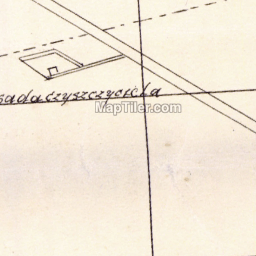 sada czyszczyciela
MapTiler.com